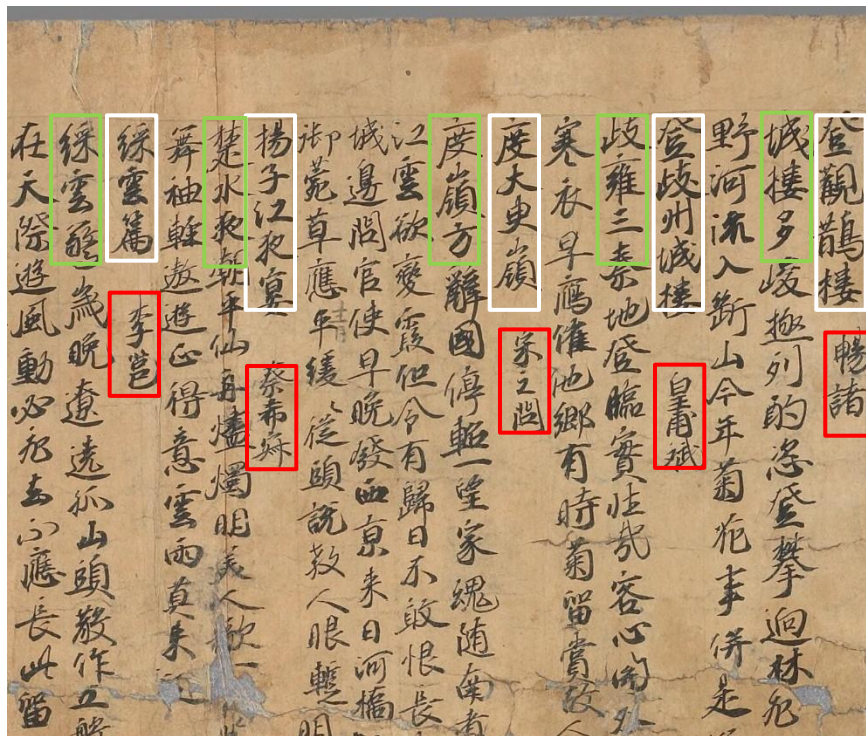 登觀鵲樓 暢諸
城樓多峻極列酌恣登攀迥林飛
野河流入斷山今年菊花事併是
登歧州城樓 皇甫斌
歧雍三秦地登臨實壯哉客心閑外
寒衣早應催他鄉有時菊留賞故人
度大臾嶺 宋之問
度嶺方辭國停軺一望家魂随南者
江雲欲變霞但令有歸日不敢恨長
城邊問官使早晚發西京来日河橋
御菀草應年緩〻從頭說教人眼蹔明
揚子江夜宴 蔡希寂
楚水夜朝平仙舟燼燭明美人歌一
舞袖軽遨遊正得意雲雨莫来
綵雲篇 李邕
綵雲驚歲晚遼遠孤山頭散作五般
在天際遊風動必飛去不應長此留